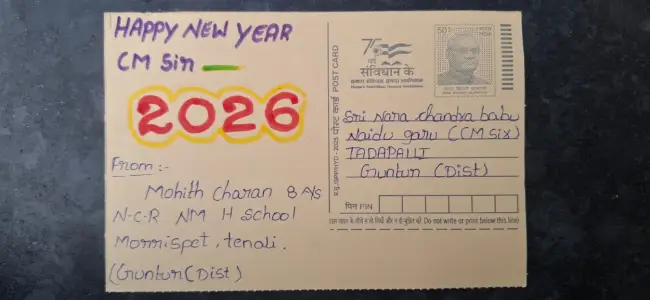 HAPPY NEW YEAR
CM Sir
2026
From :-
Mohith Charan 8 A/s
N-C-R NM H School
Morrispet, tenali.
(Guntur (Dist)
POST CARD
पोस्ट कार्ड
75
संविधान के
भारत INDIA
Sri Nara chandra babu
Naidu garu (CM sir)
TADAPALLI
Guntur (Dist)
पिन PIN
Do not write or print below this line